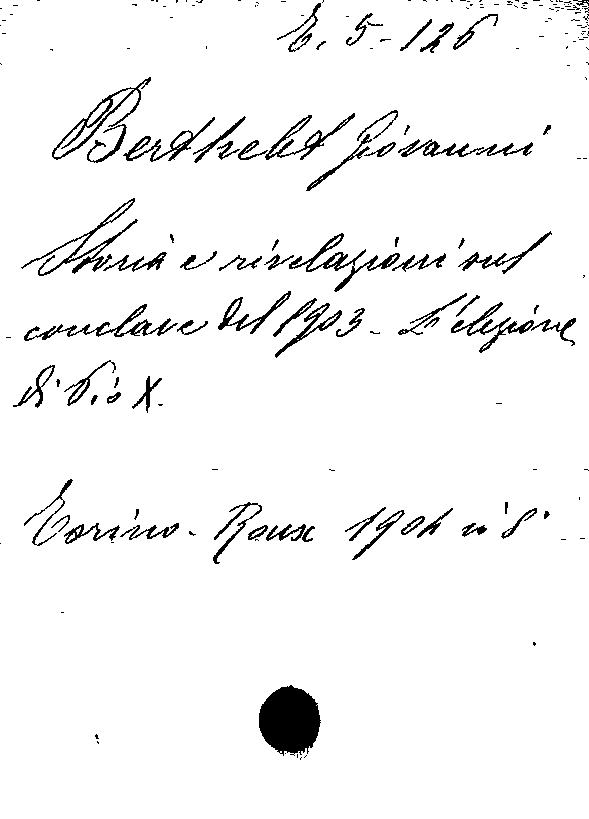 E. 5-126
Berthelet Giovanni
Storia e rivelazioni sul
conclave del 1903 - L'elezione
di Pio X.
Torino - Roux 1904 in 8°